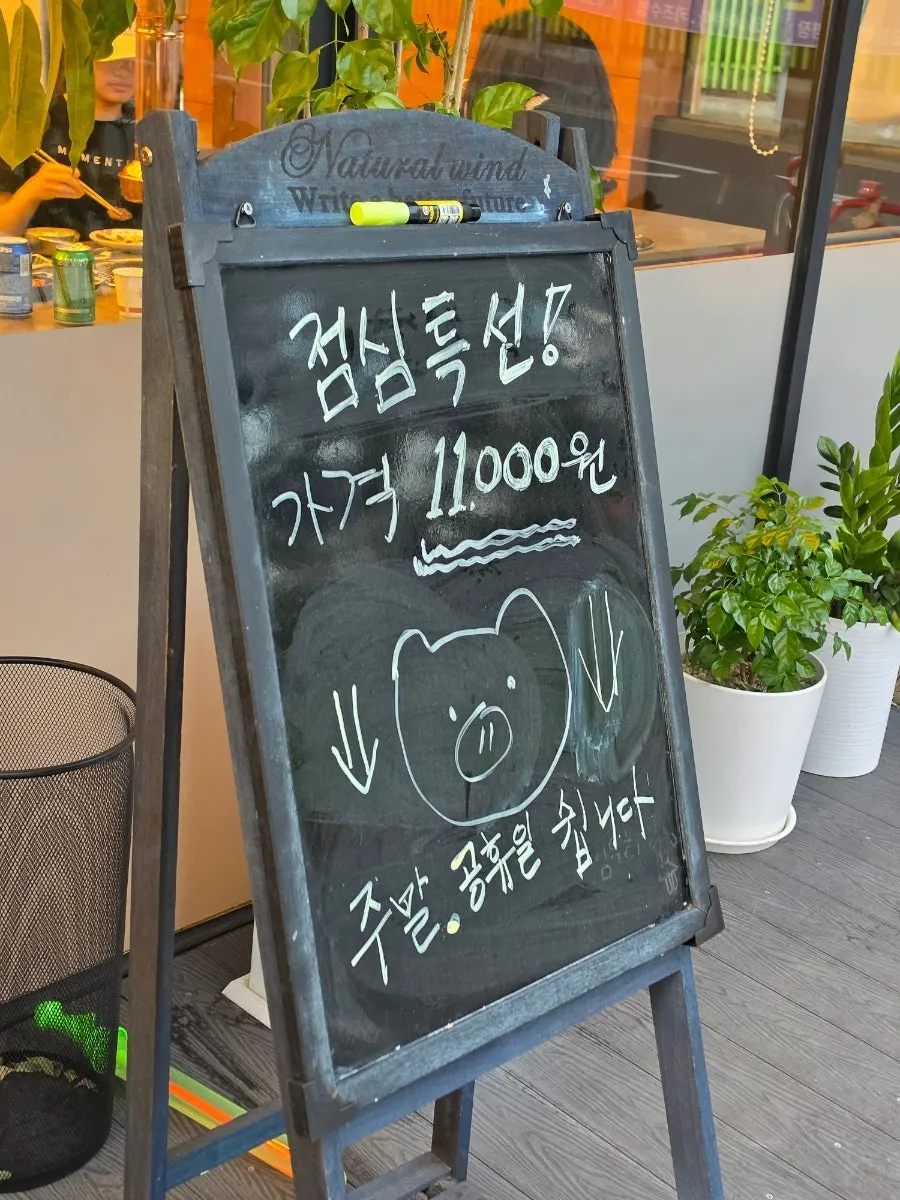 Natural wind
점심특선!
가격 11.000원
주말.공휴일 쉽니다